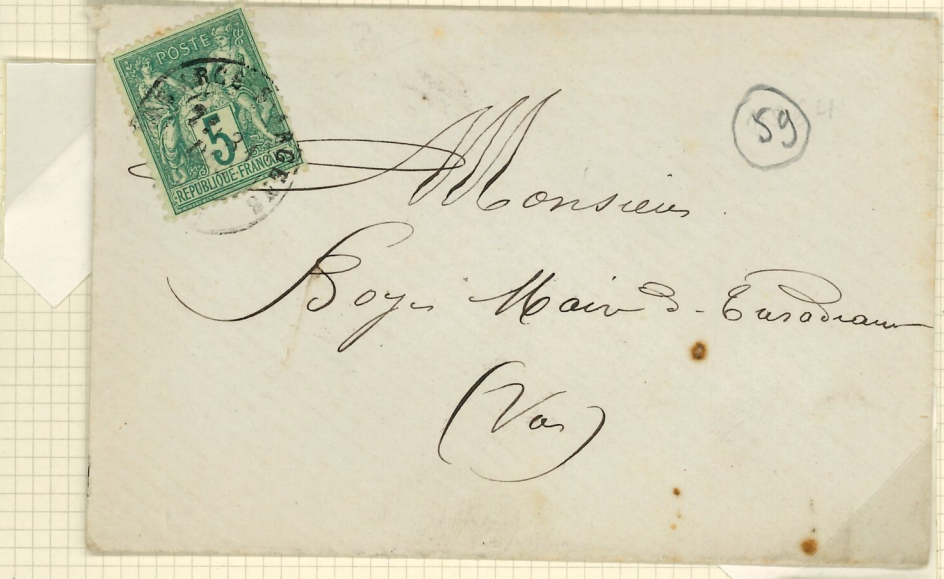 POSTE
5
REPUBLIQUE FRANÇAISE
59
Monsieur
Boyer Maire de
(Var)